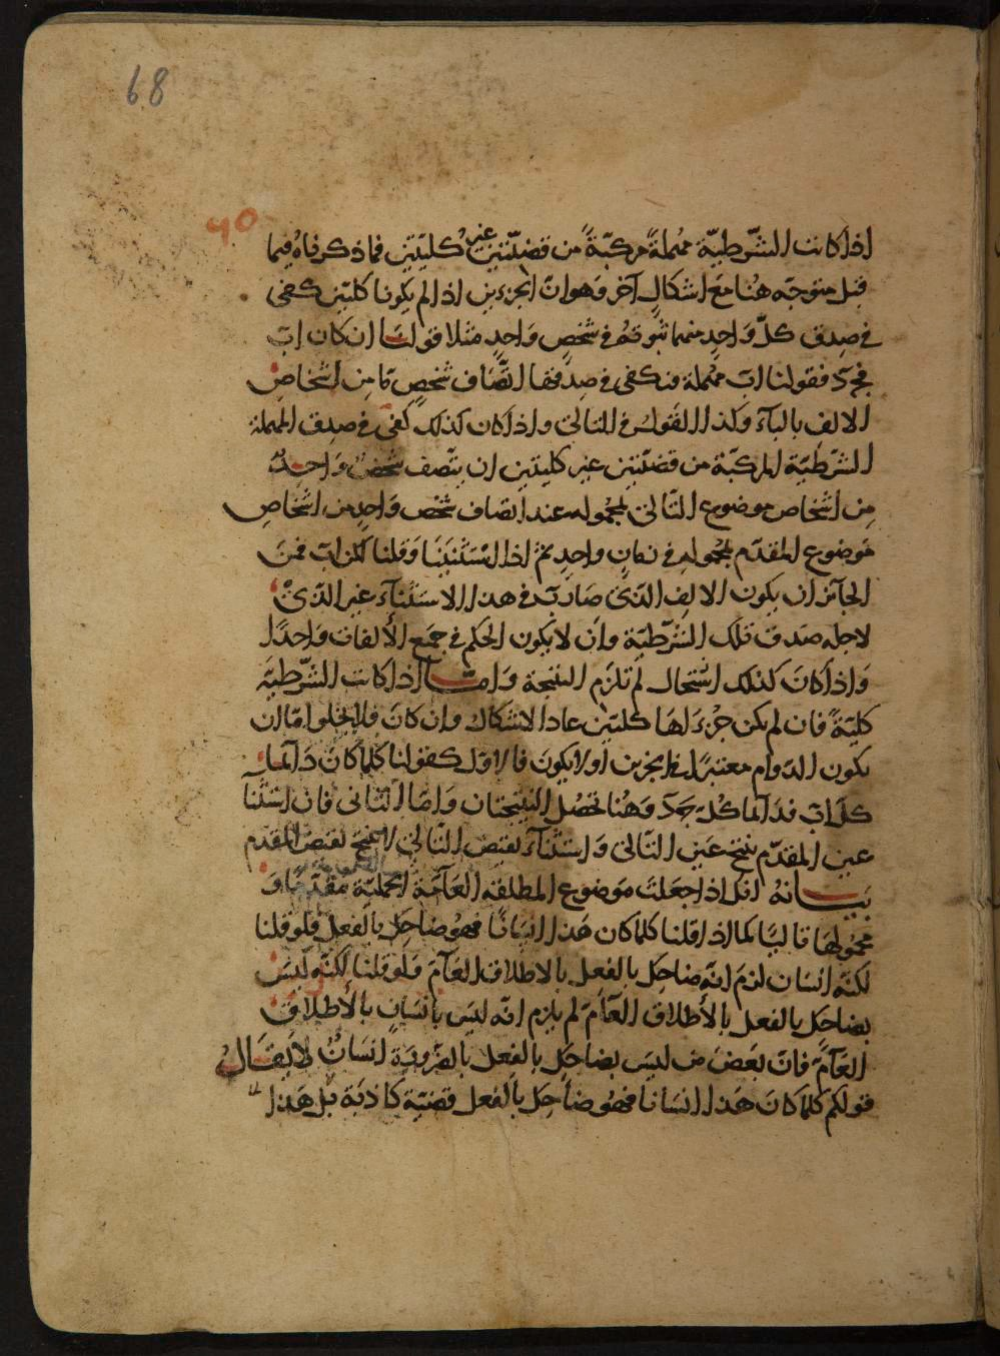 68
٦٥
اذا كانت الشرطية مهملة مركبة من قضيتين غير كليتين فما ذكرناه فيما
قبل متوجه هنا مع اشكال آخر وهو ان الجزءين اذا لم يكونا كليتين كفى
فى صدق كل واحد منهما ثبوته فى شخص واحد مثلا قولنا ان كان اب
فجد فقولنا اب مهملة فيكفى فى صدقها اتصاف شخص ما من اشخاص
الالف بالباء وكذا القول فى التالى واذا كان كذلك كفى فى صدق المهملة
الشرطية المركبة من قضيتين غير كليتين ان يتصف شخص واحد
من اشخاص موضوع التالى بمحموله عند اتصاف شخص واحد من اشخاص
موضوع المقدم بمحموله فى زمان واحد ثم اذا استثنينا وقلنا لكن اب فمن
الجائز ان يكون الالف الذى صار ب فى هذا الاستثناء غير الذى
لاجله صدق تلك الشرطية وان لا يكون الحكم فى جميع الألفات واحدا
واذا كان كذلك استحال لم تلزم النتيجة واما اذا كانت الشرطية
كلية فان لم يكن جزءاها كليتين عاد الاشكال وان كان فلا يخلو اما ان
يكون الدوام معتبرا فى الجزءين او لا يكون فالاول كقولنا كلما كان دائما
كل اب فدائما كل جد وهنا تحصل النتيجتان واما الثانى فان استثنا
عين المقدم ينتج عين التالى واستثناء نقيض التالى لا ينتج نقيض المقدم
بيانه انك اذا جعلت موضوع المطلقة العامة الحملية مقدما و
محمولها تاليا كما اذا قلنا كلما كان هذا انسانا فهو ضاحك بالفعل فلو قلنا
لكنه انسان لزم انه ضاحك بالفعل بالاطلاق العام ولو قلنا لكنه ليس
بضاحك بالفعل بالأطلاق العام لم يلزم انه ليس بانسان بالأطلاق
العام فان بعض من ليس بضاحك بالفعل بالضرورة انسان لا يقال
قولكم كلما كان هذا انسانا فهو ضاحك بالفعل قضية كاذبة بل هذا